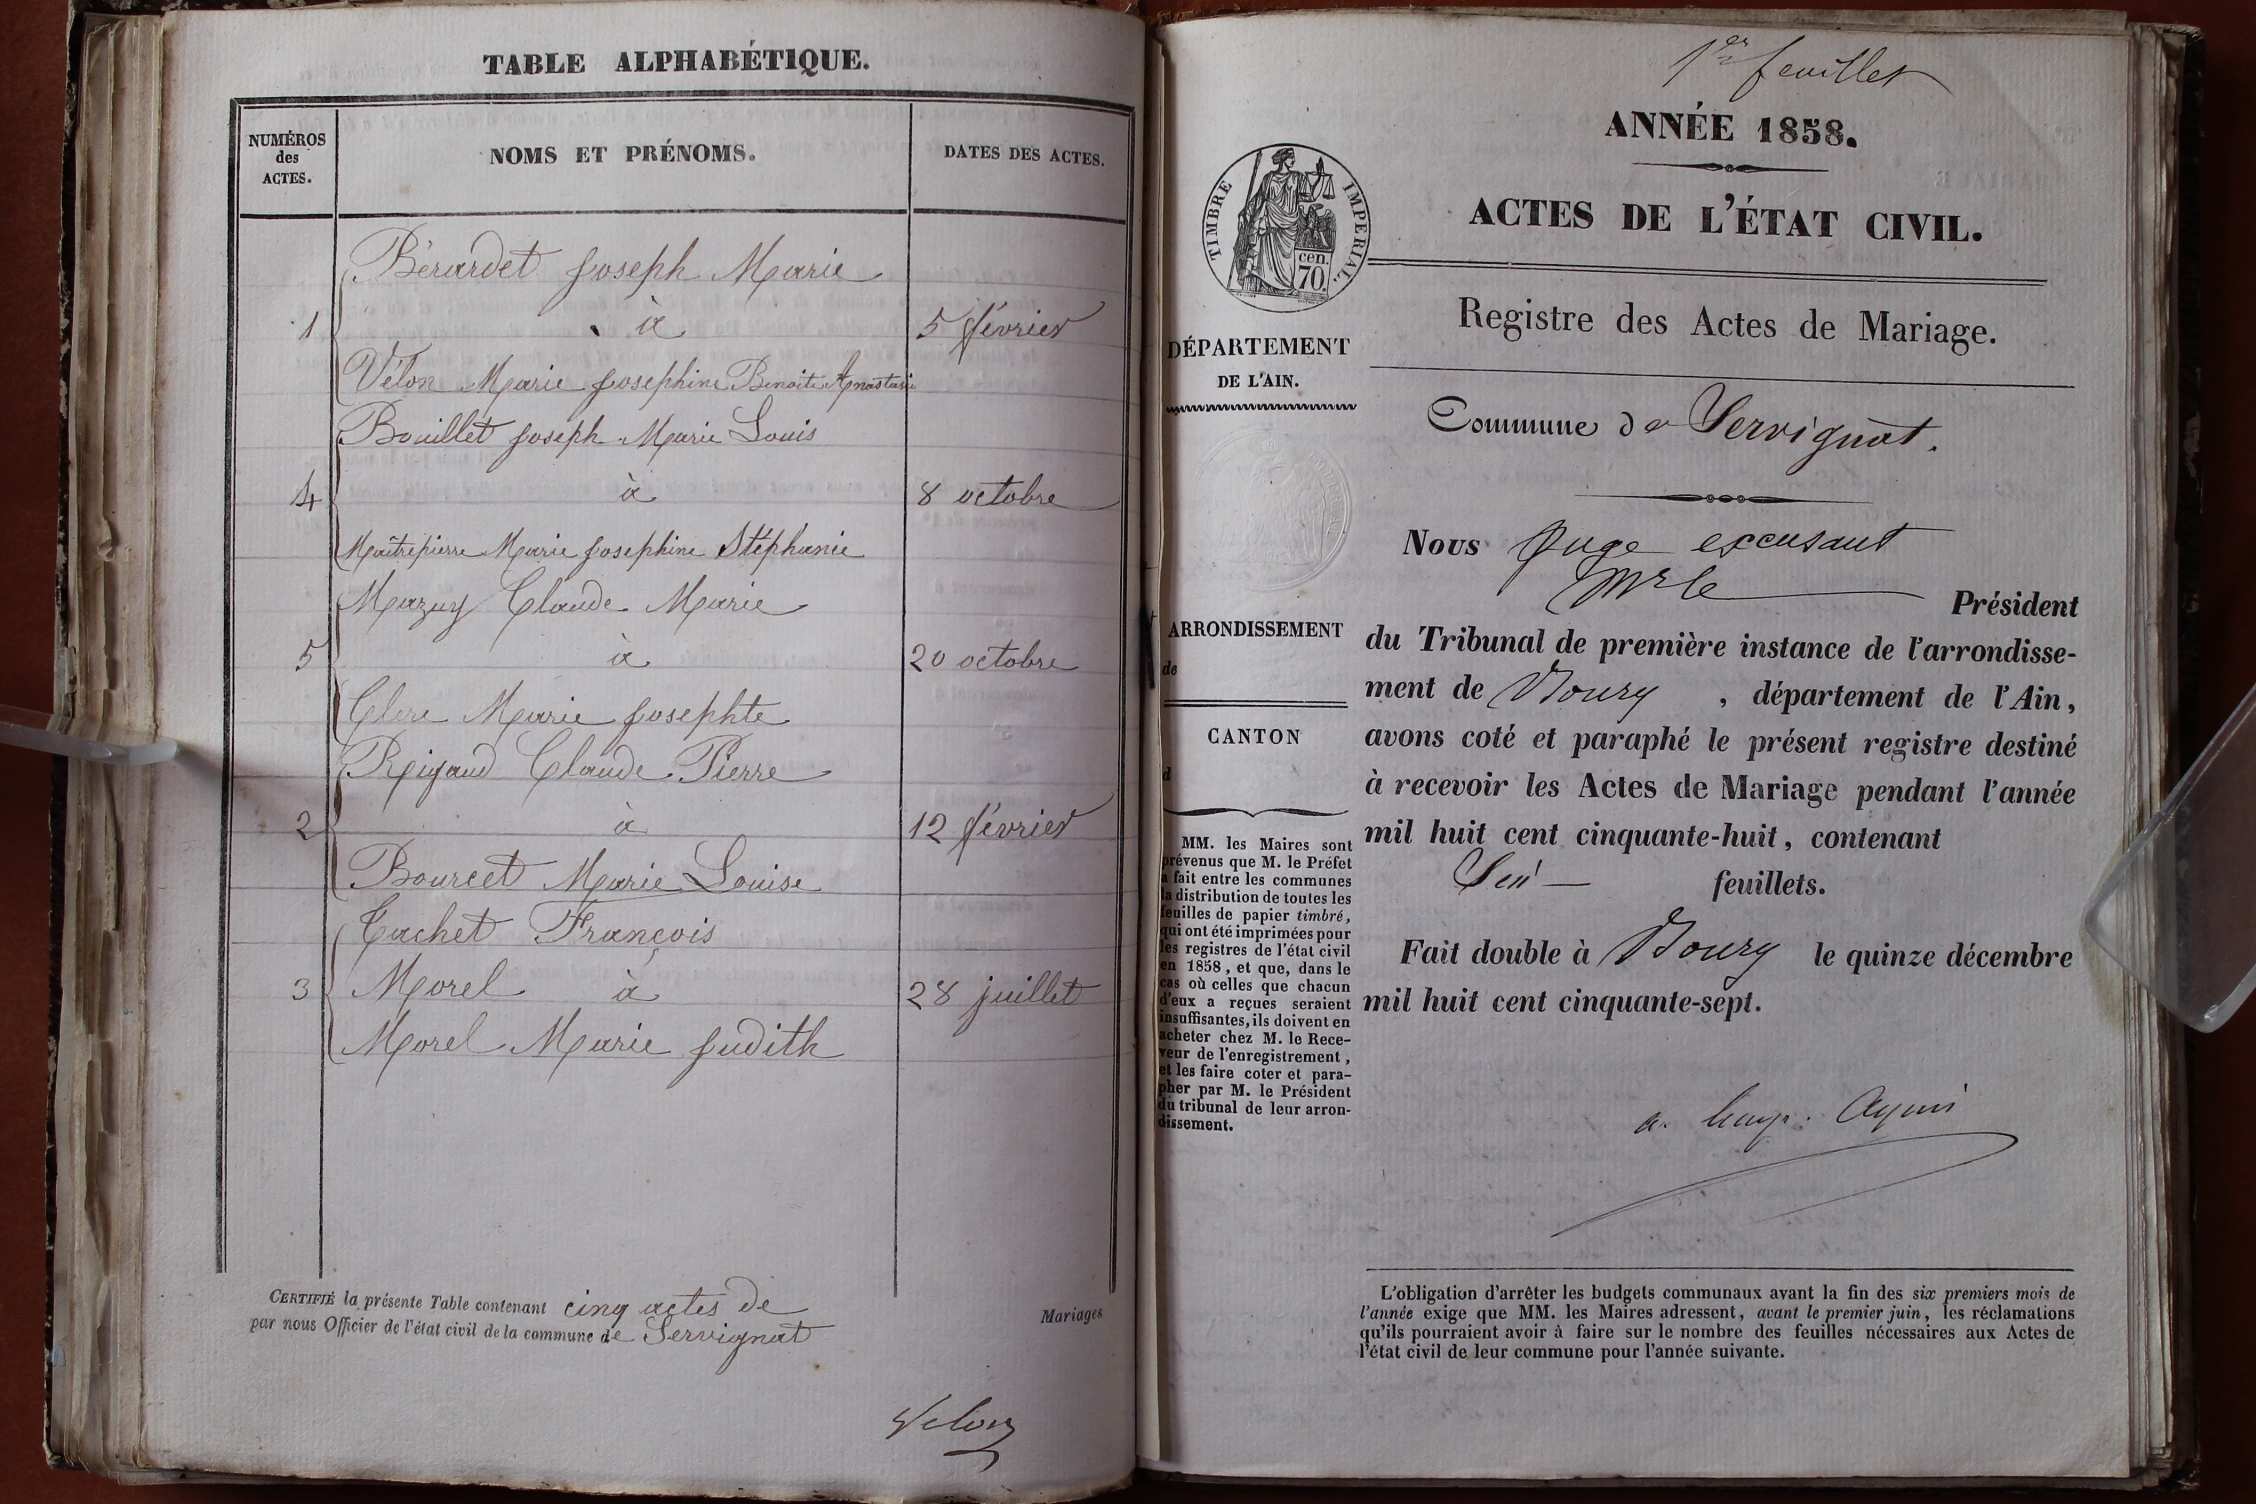 TABLE ALPHABÉTIQUE.
NUMÉROS
des
ACTES.
NOMS ET PRÉNOMS.
DATES DES ACTES.
Bérardet Joseph Marie
1 à 5 février
Vélon Marie Josephine Benoite Anastasie
Bouillet Joseph Marie Louis
4 à 8 octobre
Maîtrepierre Marie Josephine Stéphanie
Mazuy Claude Marie
5 à 20 octobre
Clere Marie Josephte
Rigaud Claude Pierre
2 à 12 février
Bourcet Marie Louise
Tachet François
3 Morel à 28 juillet
Morel Marie Judith
CERTIFIÉ la présente Table contenant cinq actes de Mariages
par nous Officier de l'état civil de la commune de Servignat
Velon
1er feuillet
ANNÉE 1858.
ACTES DE L'ÉTAT CIVIL.
TIMBRE IMPERIAL.
cen.
70.
Registre des Actes de Mariage.
DÉPARTEMENT
DE L'AIN.
Commune de Servignat.
Nous Juge
Mr le Président
du Tribunal de première instance de l'arrondisse-
ment de Bourg, département de l'Ain,
avons coté et paraphé le présent registre destiné
à recevoir les Actes de Mariage pendant l'année
mil huit cent cinquante-huit, contenant
feuillets.
Fait double à Bourg le quinze décembre
mil huit cent cinquante-sept.
ARRONDISSEMENT
de
CANTON
d
MM. les Maires sont
prévenus que M. le Préfet
a fait entre les communes
la distribution de toutes les
feuilles de papier timbré,
qui ont été imprimées pour
les registres de l'état civil
en 1858, et que, dans le
cas où celles que chacun
d'eux a reçues seraient
insuffisantes, ils doivent en
acheter chez M. le Rece-
veur de l'enregistrement,
et les faire coter et para-
pher par M. le Président
du tribunal de leur arron-
dissement.
L'obligation d'arrêter les budgets communaux avant la fin des six premiers mois de
l'année exige que MM. les Maires adressent, avant le premier juin, les réclamations
qu'ils pourraient avoir à faire sur le nombre des feuilles nécessaires aux Actes de
l'état civil de leur commune pour l'année suivante.